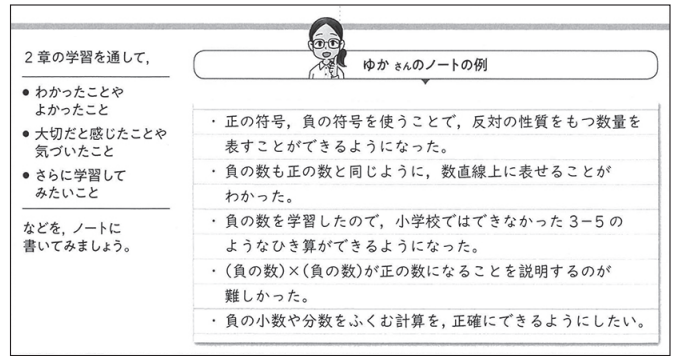 2章の学習を通して,
● わかったことや
よかったこと
● 大切だと感じたことや
気づいたこと
● さらに学習して
みたいこと
などを, ノートに
書いてみましょう。
ゆか さんのノートの例
・正の符号, 負の符号を使うことで, 反対の性質をもつ数量を
表すことができるようになった。
・負の数も正の数と同じように, 数直線上に表せることが
わかった。
・負の数を学習したので, 小学校ではできなかった 3−5 の
ようなひき算ができるようになった。
・(負の数)×(負の数)が正の数になることを説明するのが
難しかった。
・負の小数や分数をふくむ計算を, 正確にできるようにしたい。